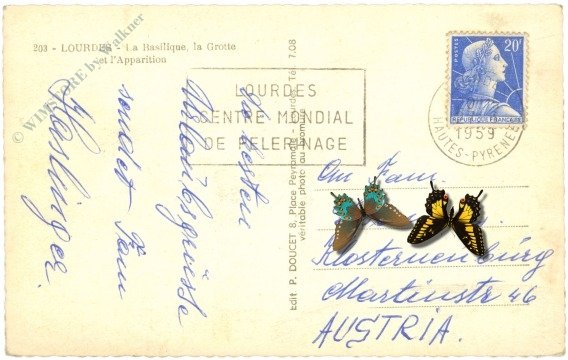 203 - LOURDES - La Basilique, la Grotte
et l'Apparition
© WIMSTORE by Falkner
LOURDES
CENTRE MONDIAL
DE PELERINAGE
POSTES 20F
REPUBLIQUE FRANÇAISE
1959
HAUTES-PYRENEES
Die besten
Urlaubsgrüsse
sendet Fam
Haslinger.
Edit P. DOUCET 8, Place Peyramale - Lourdes Tél. 7.08
véritable photo au bromure
An Fam.
Klosterneuburg
Martinstr 46
AUSTRIA.